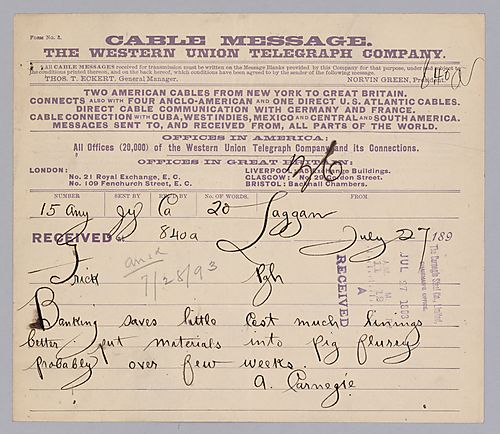 Form No. 8.
CABLE MESSAGE.
THE WESTERN UNION TELEGRAPH COMPANY.
All CABLE MESSAGES received for transmission must be written on the Message Blanks provided by this Company for that purpose, under and subject to
the conditions printed thereon, and on the back hereof, which conditions have been agreed to by the sender of the following message.
THOS. T. ECKERT, General Manager. NORVIN GREEN, President.
840a
TWO AMERICAN CABLES FROM NEW YORK TO GREAT BRITAIN.
CONNECTS ALSO WITH FOUR ANGLO-AMERICAN AND ONE DIRECT U.S. ATLANTIC CABLES.
DIRECT CABLE COMMUNICATION WITH GERMANY AND FRANCE.
CABLE CONNECTION WITH CUBA, WEST INDIES, MEXICO AND CENTRAL AND SOUTH AMERICA.
MESSAGES SENT TO, AND RECEIVED FROM, ALL PARTS OF THE WORLD.
OFFICES IN AMERICA:
All Offices (20,000) of the Western Union Telegraph Company and its Connections.
OFFICES IN GREAT BRITAIN:
LONDON:
No. 21 Royal Exchange, E. C.
No. 109 Fenchurch Street, E. C.
LIVERPOOL: A5 Exchange Buildings.
GLASGOW: No. 29 Gordon Street.
BRISTOL: Backhall Chambers.
NUMBER SENT BY REC'D BY No. OF WORDS. FROM
15 any jy Ca 20 Laggan
RECEIVED at 840a July 27 189
Frick Pgh
ansd
7/28/93
The Carnegie Steel Co., Limited.
CHAIRMAN'S OFFICE.
JUL 27 1893
RECEIVED
Banking saves little Cost much linings
better put materials into pig flurry
probably over few weeks.
A. Carnegie